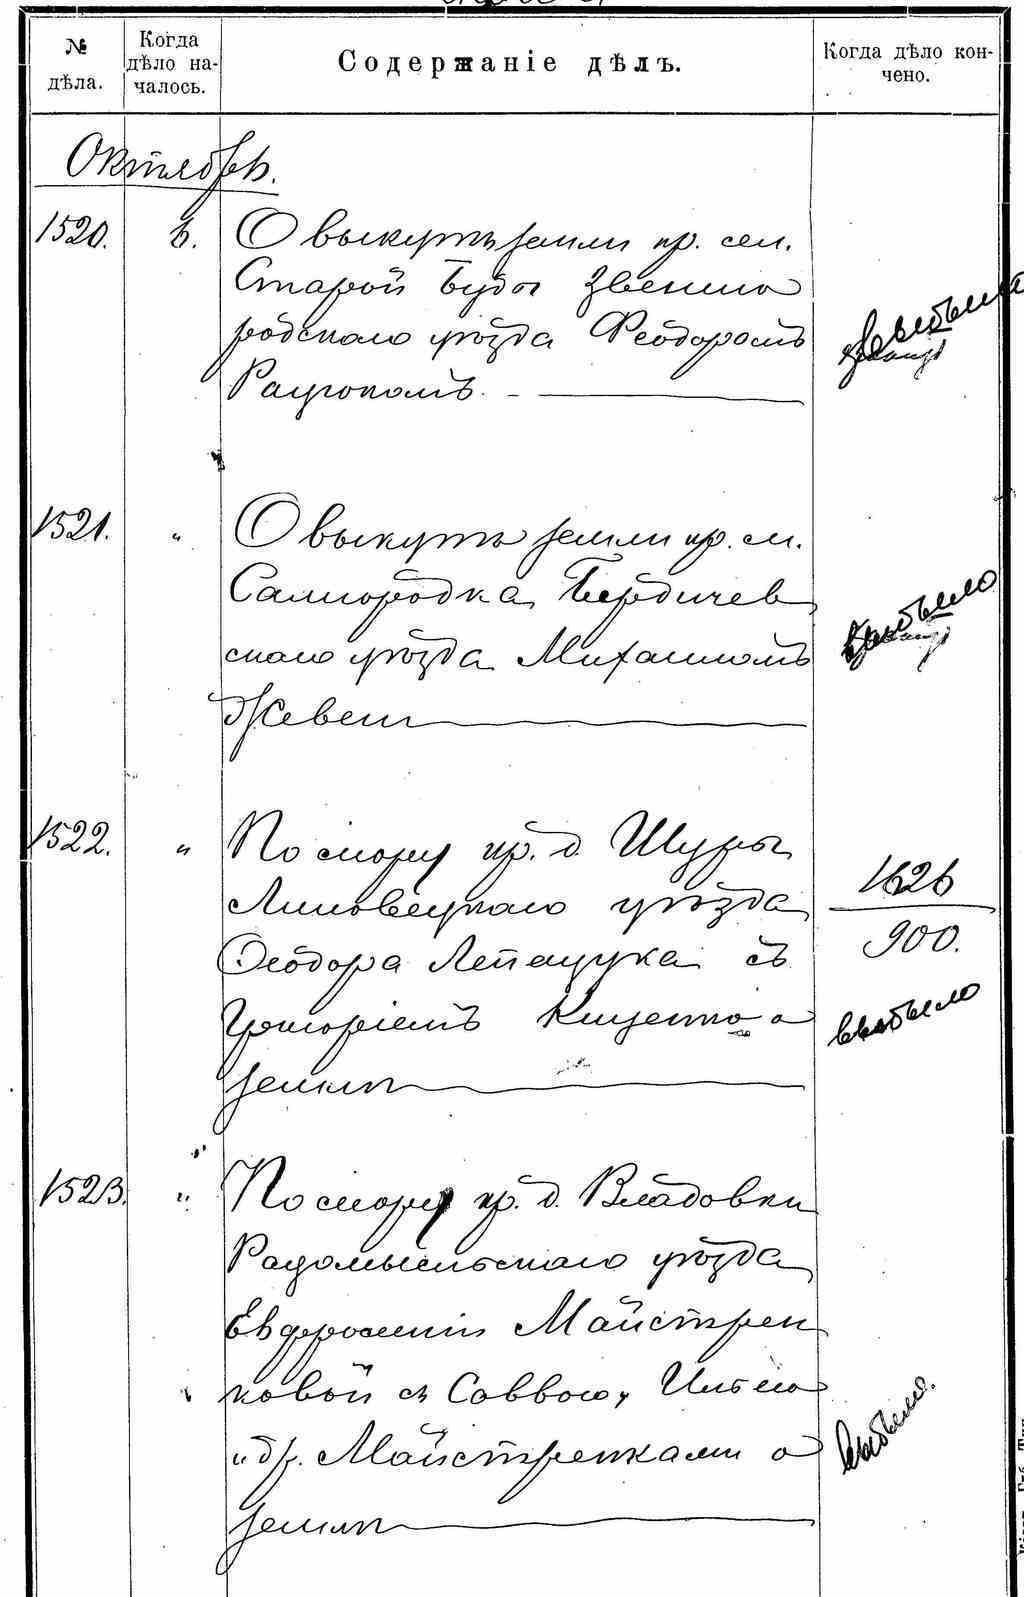 № дѣла.
Когда дѣло на-
чалось.
Содержаніе дѣлъ.
Когда дѣло кон-
чено.
Октябрь.
1520. 6. О выкупѣ земли кр. сел.
Старой Буды Звениго
родскаго уѣзда Феодоромъ
выбыло
1521. " О выкупѣ земли кр. м.
Самгородка, Бердичев
скаго уѣзда Михаиломъ
Жевел
выбыло
1522. " По спору кр. д. Шуры
Липовецкаго уѣзда
Ѳеодора Лепещука съ
Григоріемъ Кищенко о
землѣ
1626
900.
выбыло
1523. " По спору кр. д. Владовки
Радомысльскаго уѣзда
Евфросиніи Майстрен
ковой съ Саввою, Ильею
и др. Майстренками о
землѣ
выбыло.